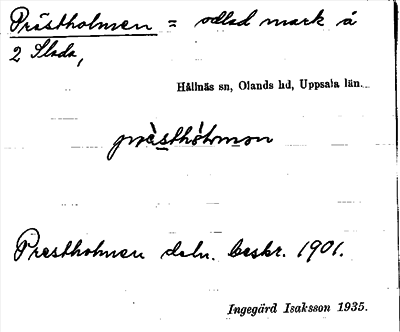 Prästholmen = odlad mark å
2 Slada,
Hållnäs sn, Olands hd, Uppsala län.
præ̀sthòlmən
Prestholmen deln. beskr. 1901.
Ingegärd Isaksson 1935.